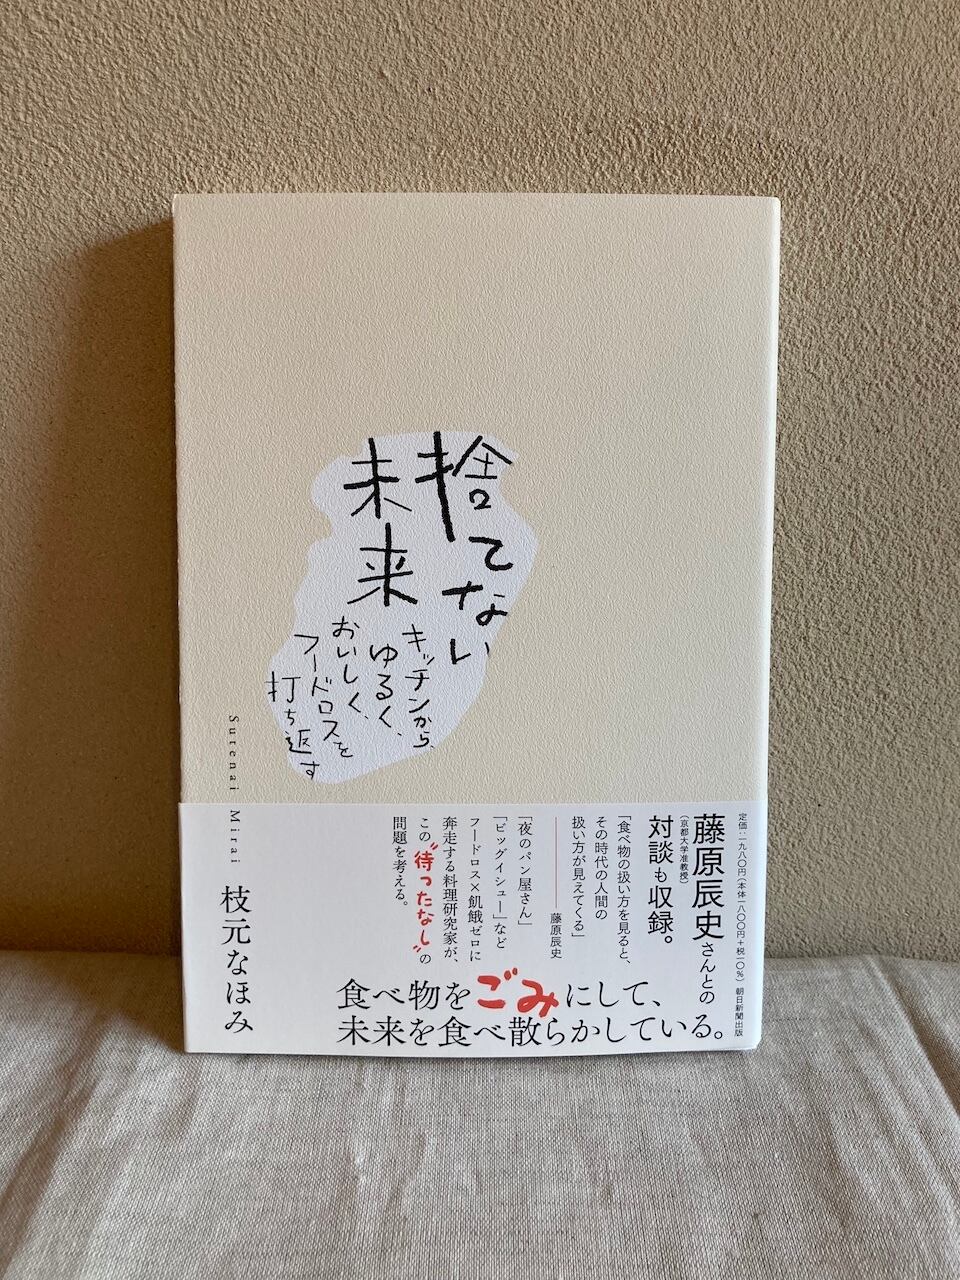 捨てない
未来
キッチンから、
ゆるく、
おいしく、
フードロスを
打ち返す
Surenai Mirai
枝元なほみ
定価:一九八〇円(本体一八〇〇円+税一〇%) 朝日新聞出版
藤原辰史さんとの
(京都大学准教授)
対談も収録。
「食べ物の扱い方を見ると、
その時代の人間の
扱い方が見えてくる」
藤原辰史
「夜のパン屋さん」
「ビッグイシュー」など
フードロス×飢餓ゼロに
奔走する料理研究家が、
この“待ったなし”の
問題を考える。
食べ物をごみにして、
未来を食べ散らかしている。